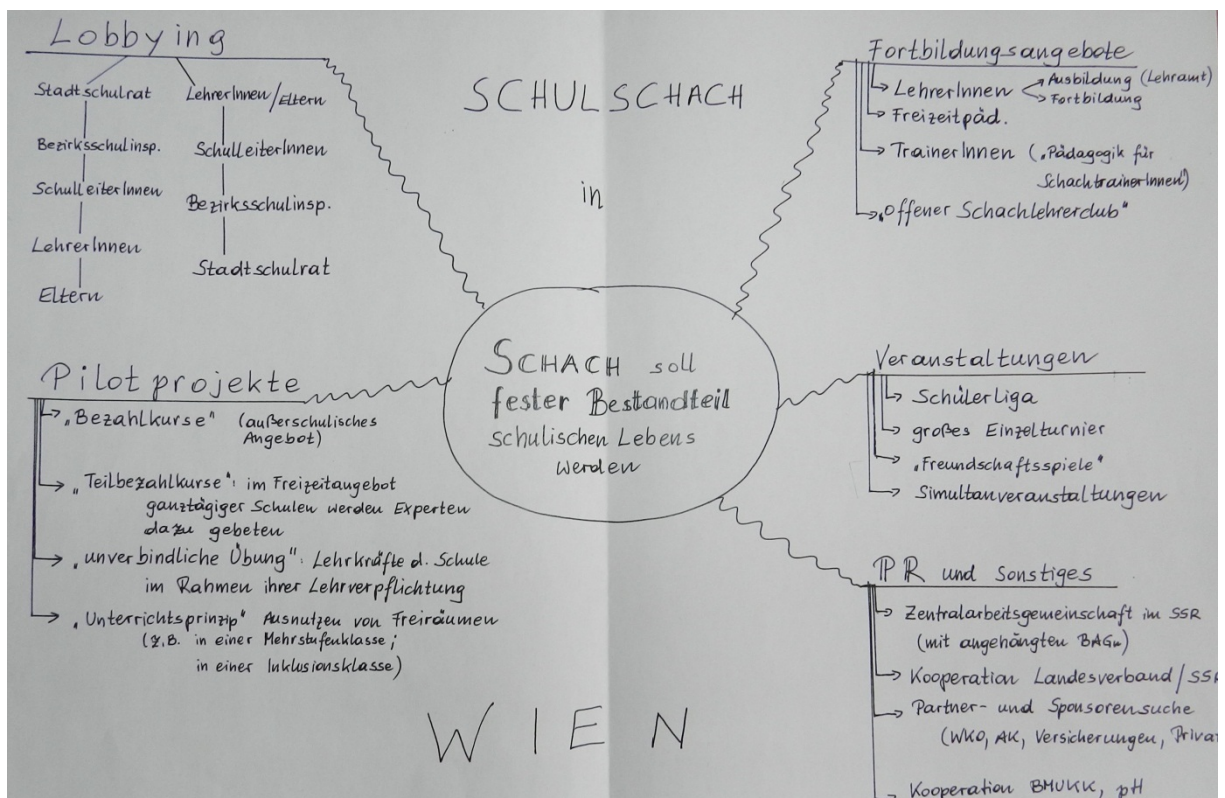 Lobbying
Stadtschulrat
Bezirksschulinsp.
SchulleiterInnen
LehrerInnen
Eltern
LehrerInnen/Eltern
SchulleiterInnen
Bezirksschulinsp.
Stadtschulrat
SCHULSCHACH
in
WIEN
Fortbildungsangebote
LehrerInnen
Ausbildung (Lehramt)
Fortbildung
Freizeitpäd.
TrainerInnen („Pädagogik für
SchachtrainerInnen")
„offener Schachlehrerclub"
SCHACH soll
fester Bestandteil
schulischen Lebens
werden
Pilotprojekte
„Bezahlkurse" (außerschulisches
Angebot)
„Teilbezahlkurse": im Freizeitangebot
ganztägiger Schulen werden Experten
dazu gebeten
„unverbindliche Übung": Lehrkräfte d. Schule
im Rahmen ihrer Lehrverpflichtung
„Unterrichtsprinzip" Ausnutzen von Freiräumen
(z.B. in einer Mehrstufenklasse;
in einer Inklusionsklasse)
Veranstaltungen
Schülerliga
großes Einzelturnier
„Freundschaftsspiele"
Simultanveranstaltungen
PR und Sonstiges
Zentralarbeitsgemeinschaft im SSR
(mit angehängten BAGn)
Kooperation Landesverband/SSR
Partner- und Sponsorensuche
(WKO, AK, Versicherungen, Privat
Kooperation BMUKK, pH